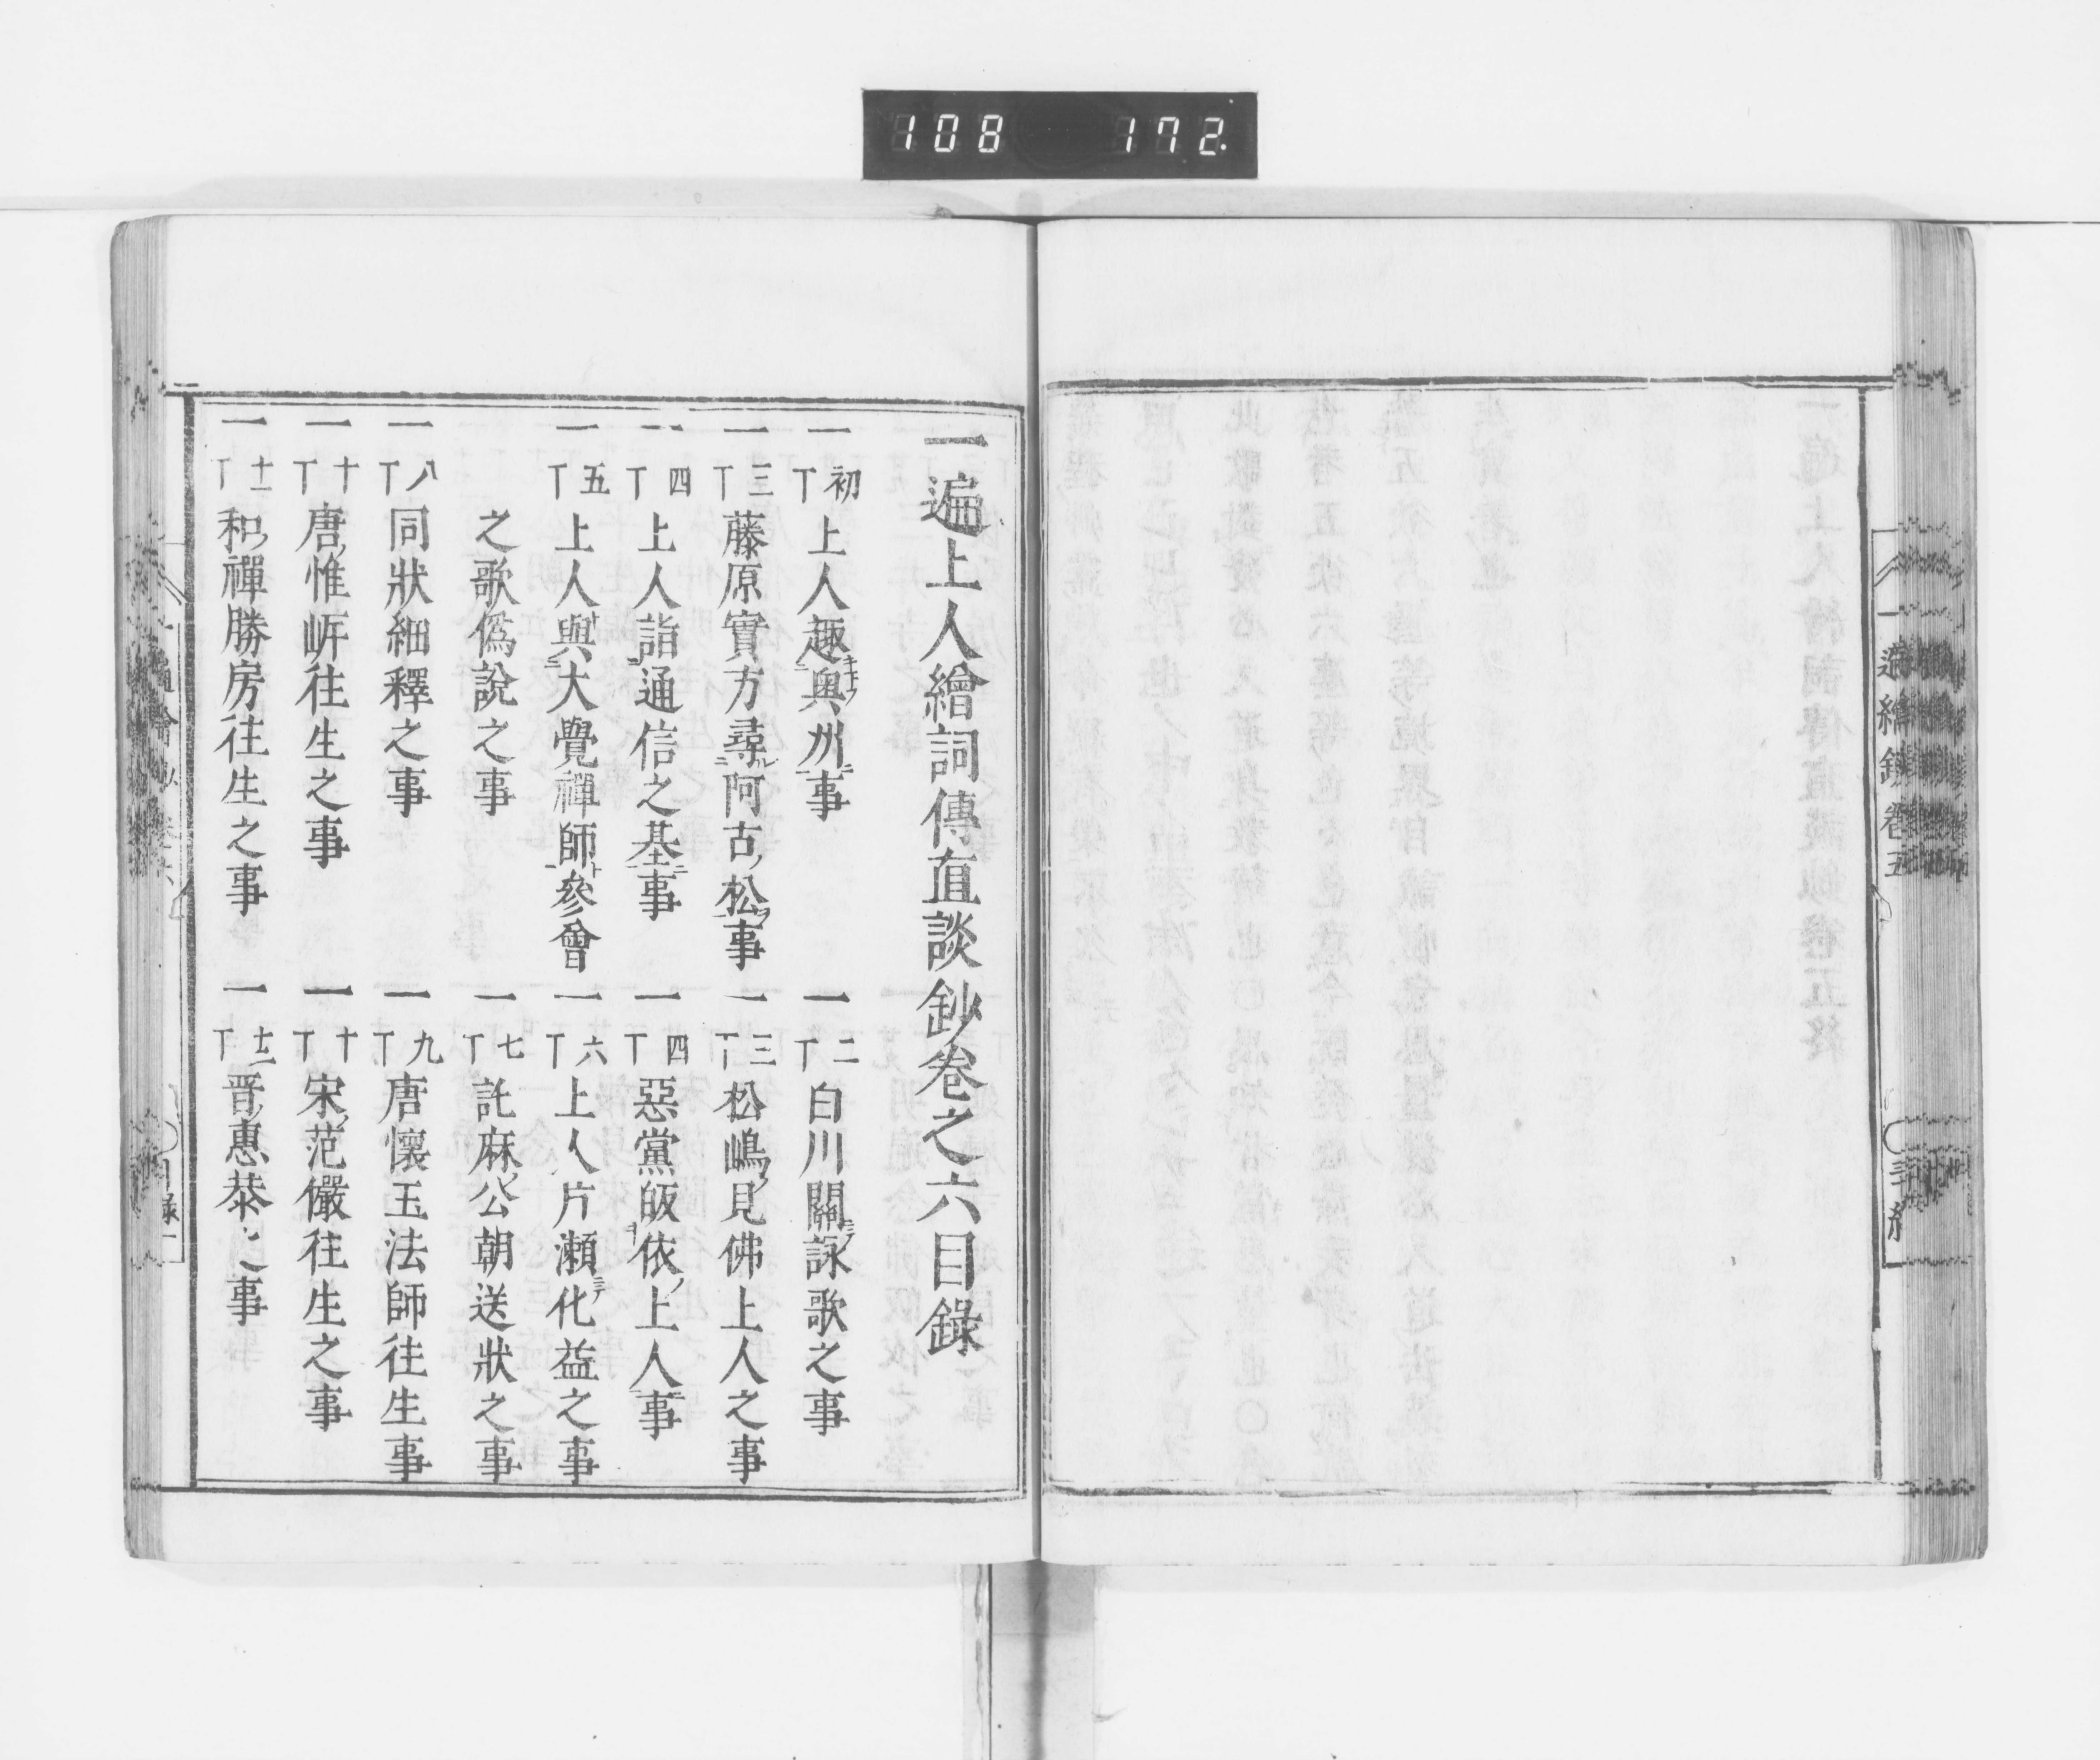 108 172.
一遍繪鈔卷五
一遍上人繪詞傳直談鈔卷之六目錄
一初丁上人趣奥州事
一二丁白川關詠歌之事
一三丁藤原實方尋阿古松事
一三丁松嶋見佛上人之事
一四丁上人詣通信之基事
一四丁惡黨皈依上人事
一五丁上人與大覺禪師參會
一六丁上人片瀬化益之事
之歌僞説之事
一七丁託麻公朝送狀之事
一八丁同狀細釋之事
一九丁唐懷玉法師往生事
一十丁唐惟岍往生之事
一十丁宋范儼往生之事
一十一丁和禪勝房往生之事
一十二丁晋惠恭之事